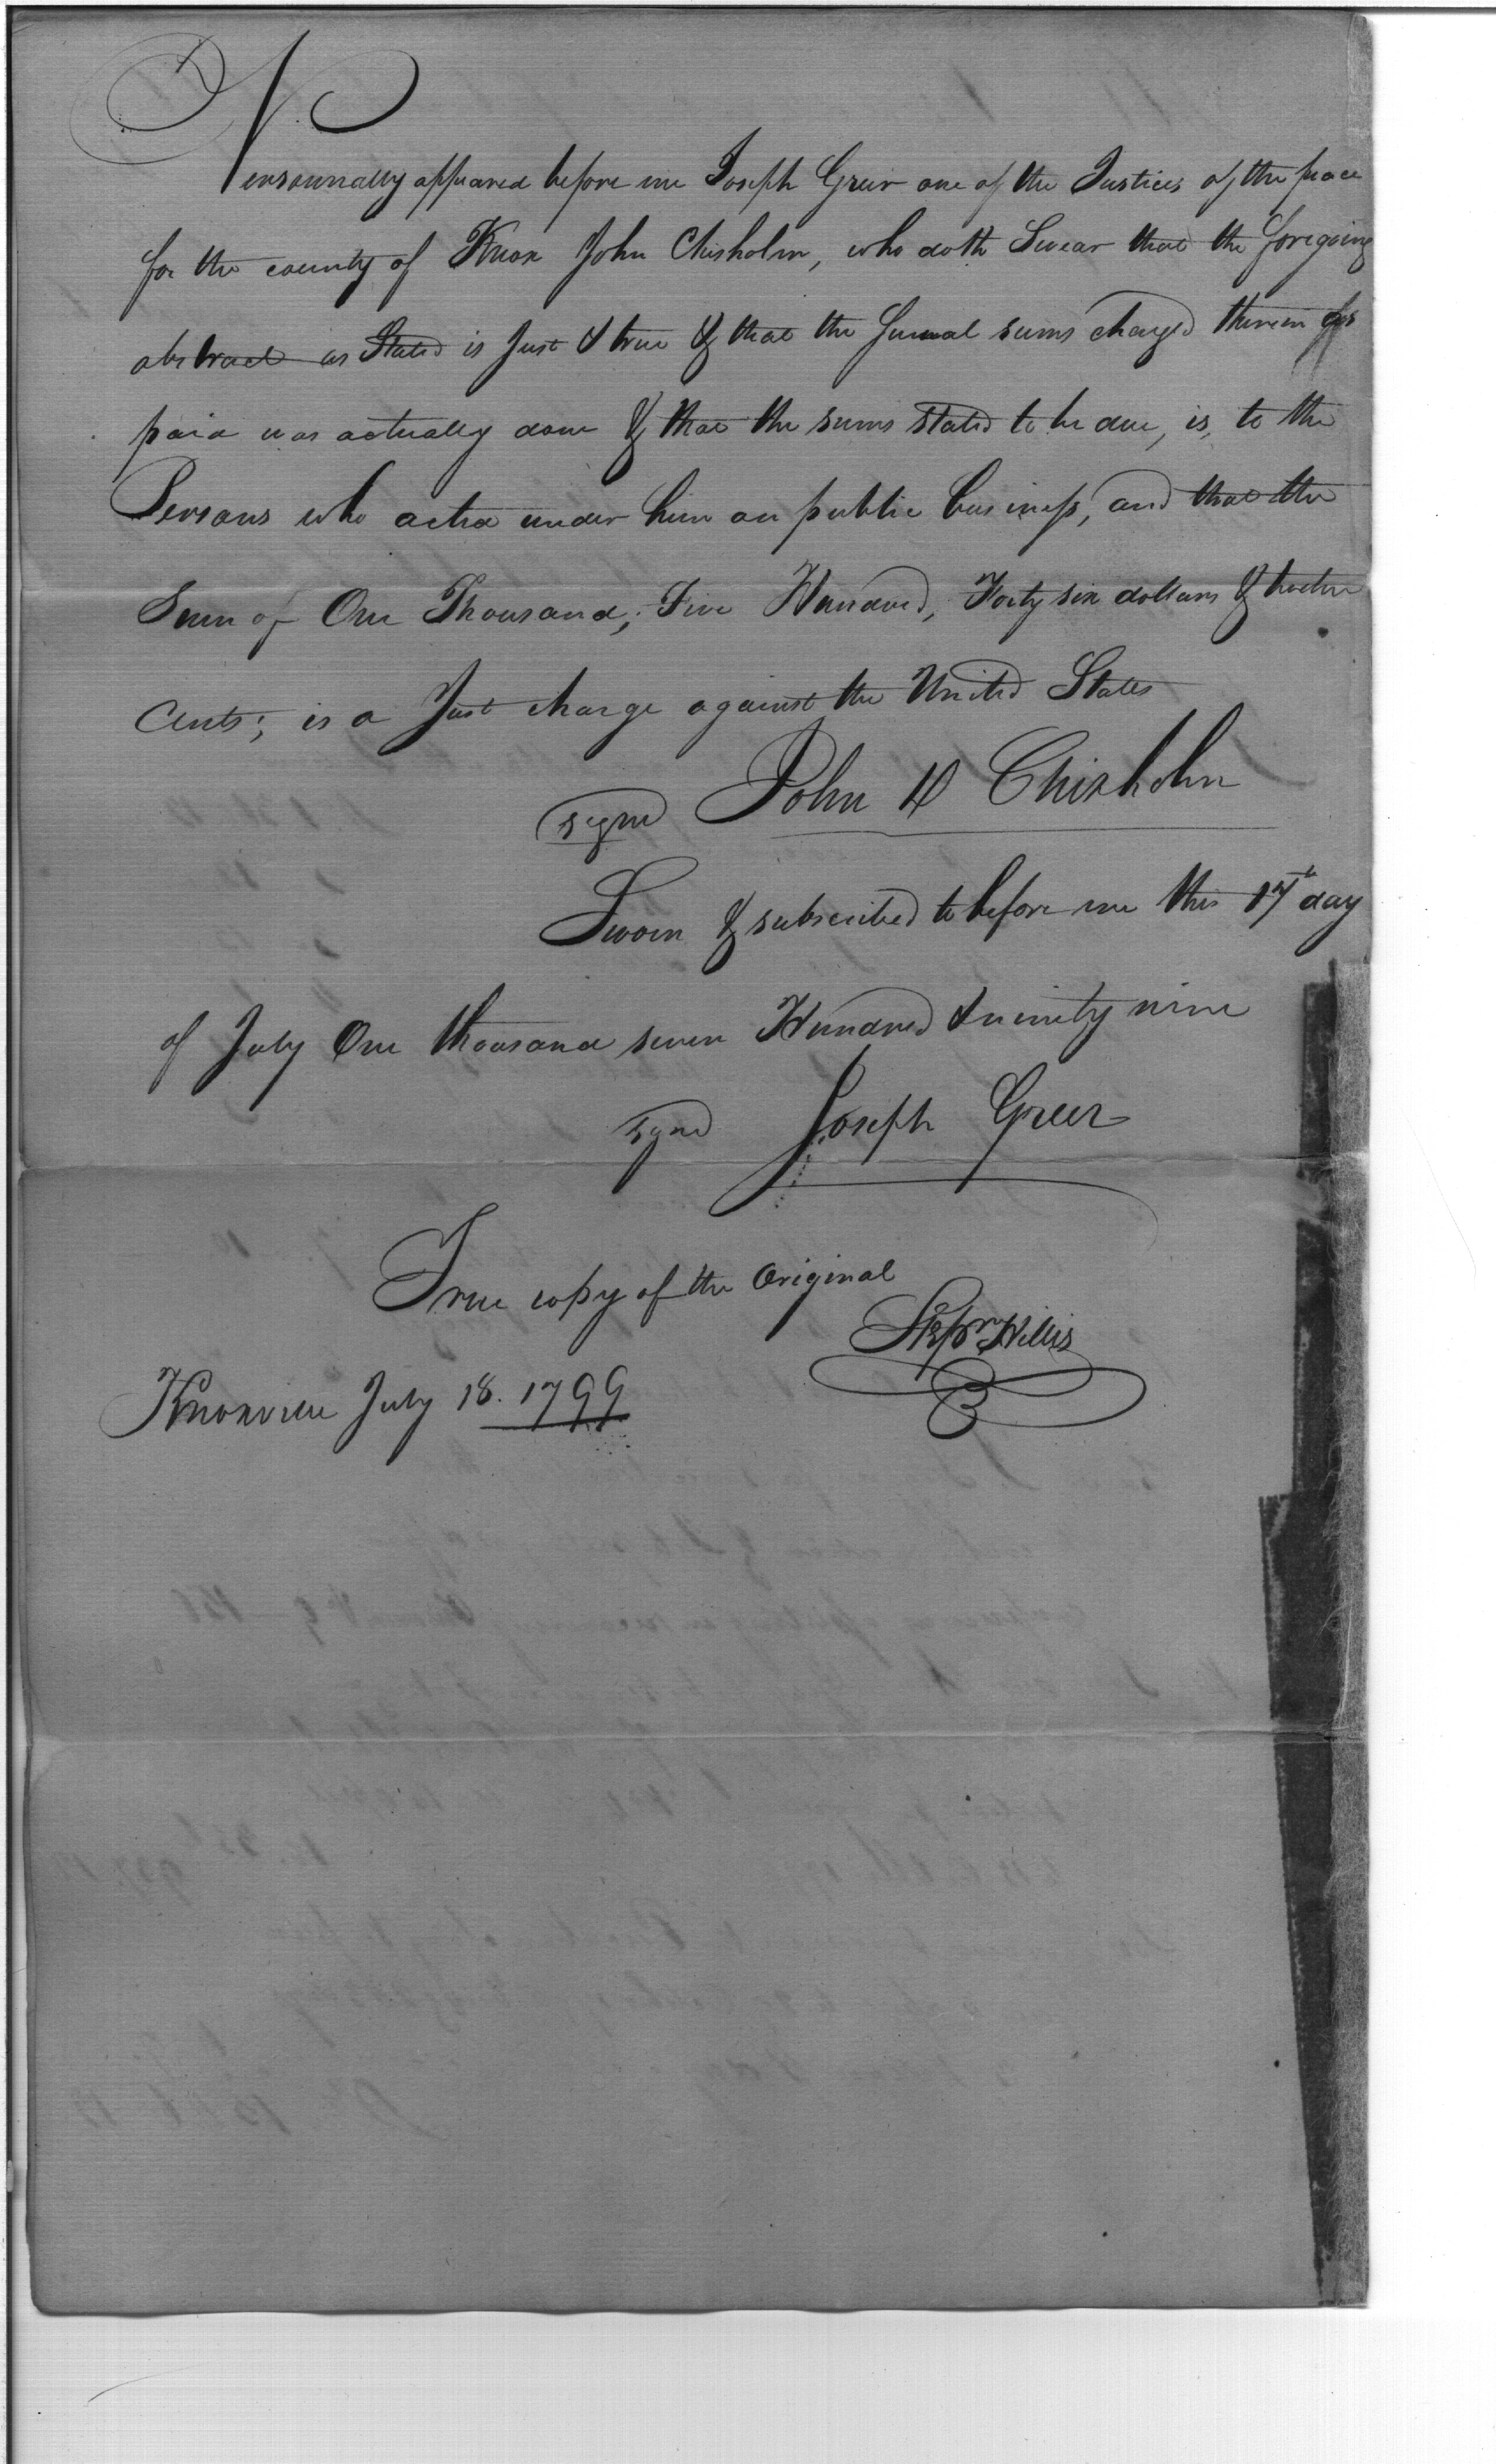 Personnally appeared before me Joseph Greer one of the Justices of the peace
for the county of Knox John Chisholm, who doth Swear that the foregoing
abstract as Stated is Just & true & that the several sums charged therein as
paid was actually done & that the sums stated to be due, is, to the
Persons who acted under him on public business, and that the
Sum of One Thousand, Five Hundred, Forty six dollars & twelve
Cents; is a Just charge against the United States
signd John D Chisholm
Sworn & subscribed to before me this 17th day
of July One thousand seven Hundred & ninety nine
signd Joseph Greer
True copy of the Original
Stepn Hillis
Knoxville July 18. 1799